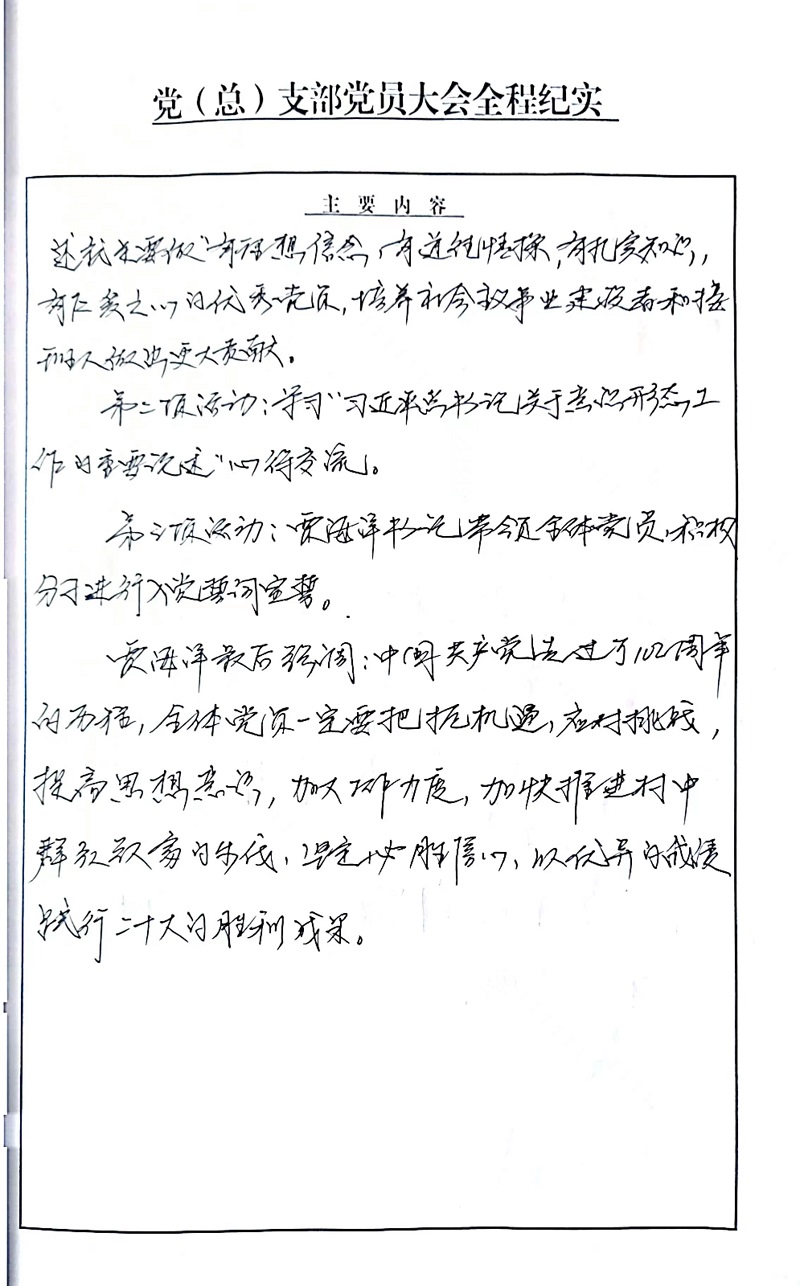 党（总）支部党员大会全程纪实
主要内容
要做“有理想信念，有道德情操，有扎实知识，
有仁爱之心”的优秀党员，培养社会主义事业建设者和接
班人做出更大贡献。
第二项活动：学习“习近平总书记关于意识形态工
作的重要论述”心得交流。
第三项活动：贾海洋书记带领全体党员、积极
分子进行入党誓词宣誓。
贾海洋最后强调：中国共产党走过了102周年
的历程，全体党员一定要把握机遇，应对挑战，
提高思想意识，加大工作力度，加快推进村中
群众致富的步伐，坚定必胜信心，以优异的成绩
践行二十大的胜利成果。